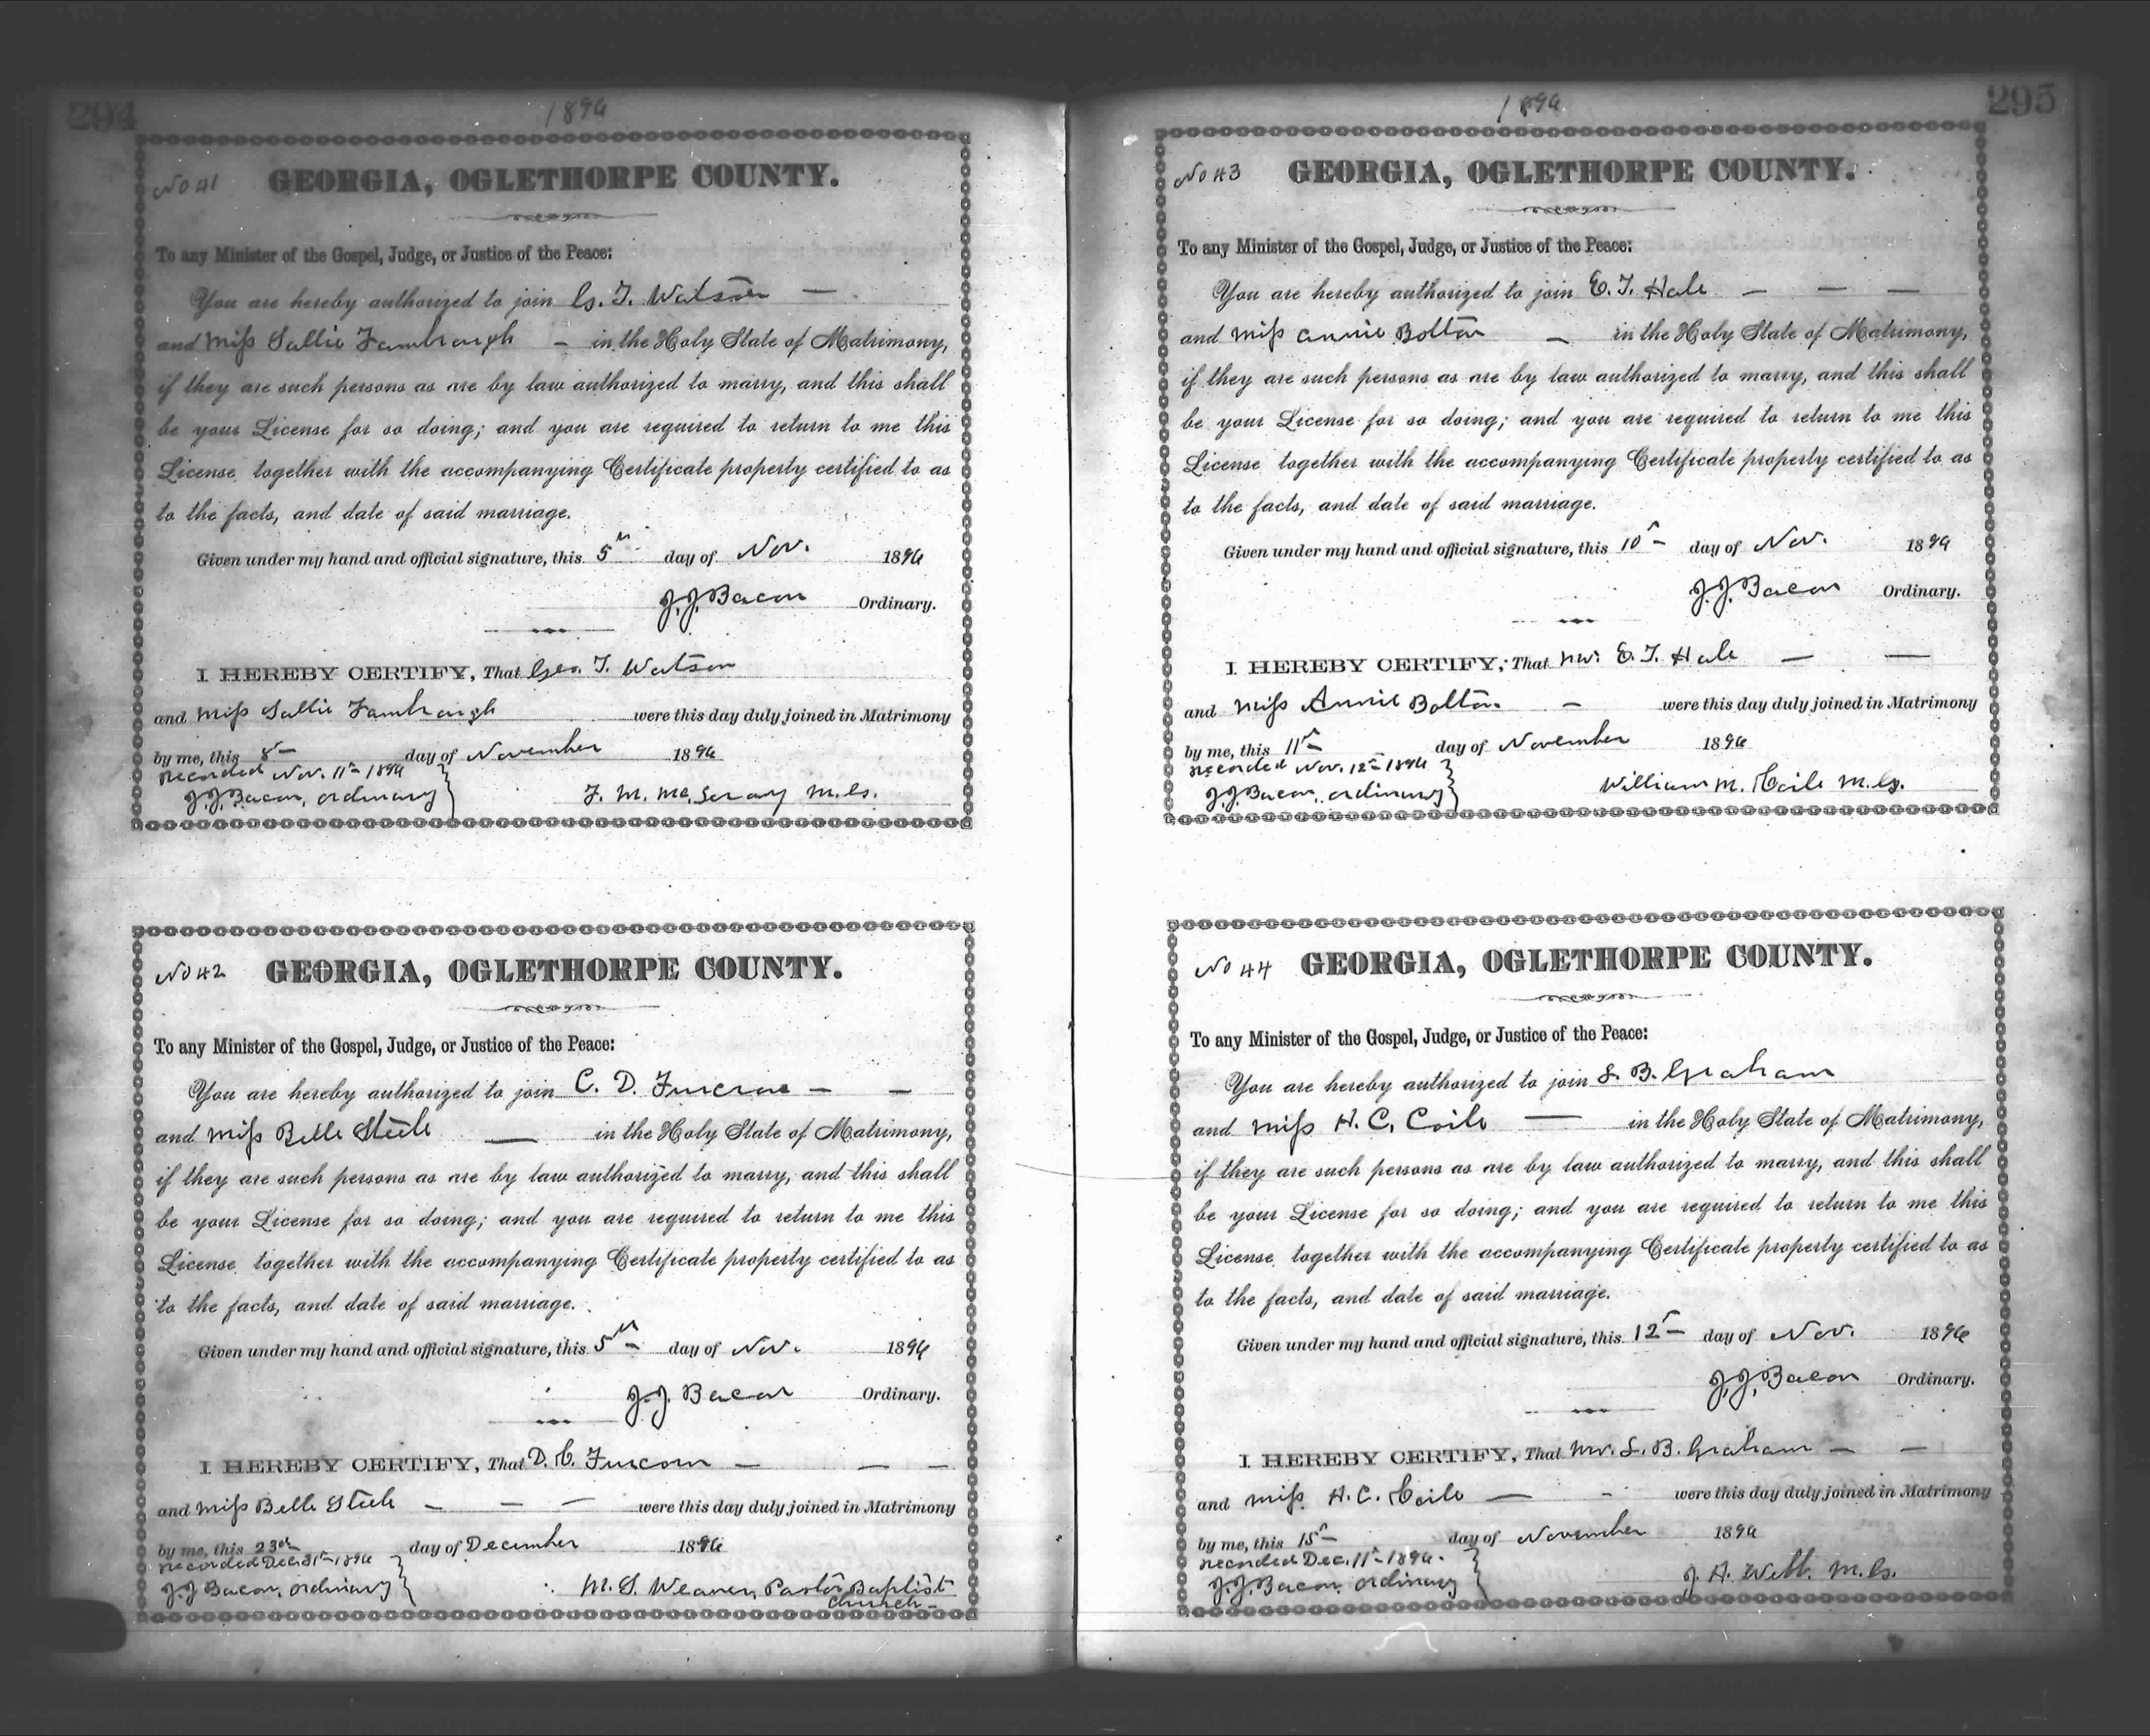 294
1896
No 41 GEORGIA, OGLETHORPE COUNTY.
To any Minister of the Gospel, Judge, or Justice of the Peace:
You are hereby authorized to join G. T. Watson —
and Miss Sallie Fambrough — in the Holy State of Matrimony,
if they are such persons as are by law authorized to marry, and this shall
be your License for so doing; and you are required to return to me this
License together with the accompanying Certificate property certified to as
to the facts, and date of said marriage.
Given under my hand and official signature, this 5th day of Nov. 1896
J. J. Bacon Ordinary.
I HEREBY CERTIFY, That Geo. T. Watson
and Miss Sallie Fambrough were this day duly joined in Matrimony
by me, this 8 — day of November 1896
Recorded Nov. 11th 1896
J. J. Bacon, ordinary } F. M. M.G.
No 42 GEORGIA, OGLETHORPE COUNTY.
To any Minister of the Gospel, Judge, or Justice of the Peace:
You are hereby authorized to join C. D. — —
and Miss Belle Steele — in the Holy State of Matrimony,
if they are such persons as are by law authorized to marry, and this shall
be your License for so doing; and you are required to return to me this
License together with the accompanying Certificate property certified to as
to the facts, and date of said marriage.
Given under my hand and official signature, this 5th — day of Nov. 1896
J. J. Bacon Ordinary.
I HEREBY CERTIFY, That D. C. — — —
and Miss Belle Steele — — — were this day duly joined in Matrimony
by me, this 23rd day of December 1896
Recorded Dec. 31st 1896
J. J. Bacon, ordinary } M. S. Weaver, Pastor Baptist
Church —
295
1896
No 43 GEORGIA, OGLETHORPE COUNTY.
To any Minister of the Gospel, Judge, or Justice of the Peace:
You are hereby authorized to join E. T. Hale — — —
and Miss Annie Bolton — in the Holy State of Matrimony,
if they are such persons as are by law authorized to marry, and this shall
be your License for so doing; and you are required to return to me this
License together with the accompanying Certificate property certified to as
to the facts, and date of said marriage.
Given under my hand and official signature, this 10th — day of Nov. 1896
J. J. Bacon Ordinary.
I HEREBY CERTIFY, That Mr. E. T. Hale — —
and Miss Annie Bolton — were this day duly joined in Matrimony
by me, this 11th — day of November 1896
Recorded Nov. 12th 1896
J. J. Bacon, ordinary } William M. Coile M.G.
No 44 GEORGIA, OGLETHORPE COUNTY.
To any Minister of the Gospel, Judge, or Justice of the Peace:
You are hereby authorized to join S. B. Graham
and Miss H. C. Coile — in the Holy State of Matrimony,
if they are such persons as are by law authorized to marry, and this shall
be your License for so doing; and you are required to return to me this
License together with the accompanying Certificate property certified to as
to the facts, and date of said marriage.
Given under my hand and official signature, this 12th — day of Nov. 1896
J. J. Bacon Ordinary.
I HEREBY CERTIFY, That Mr. S. B. Graham — —
and Miss H. C. Coile — - were this day duly joined in Matrimony
by me, this 15th — day of November 1896
Recorded Dec. 11th 1896.
J. J. Bacon, ordinary } J. H. Webb. M.G.